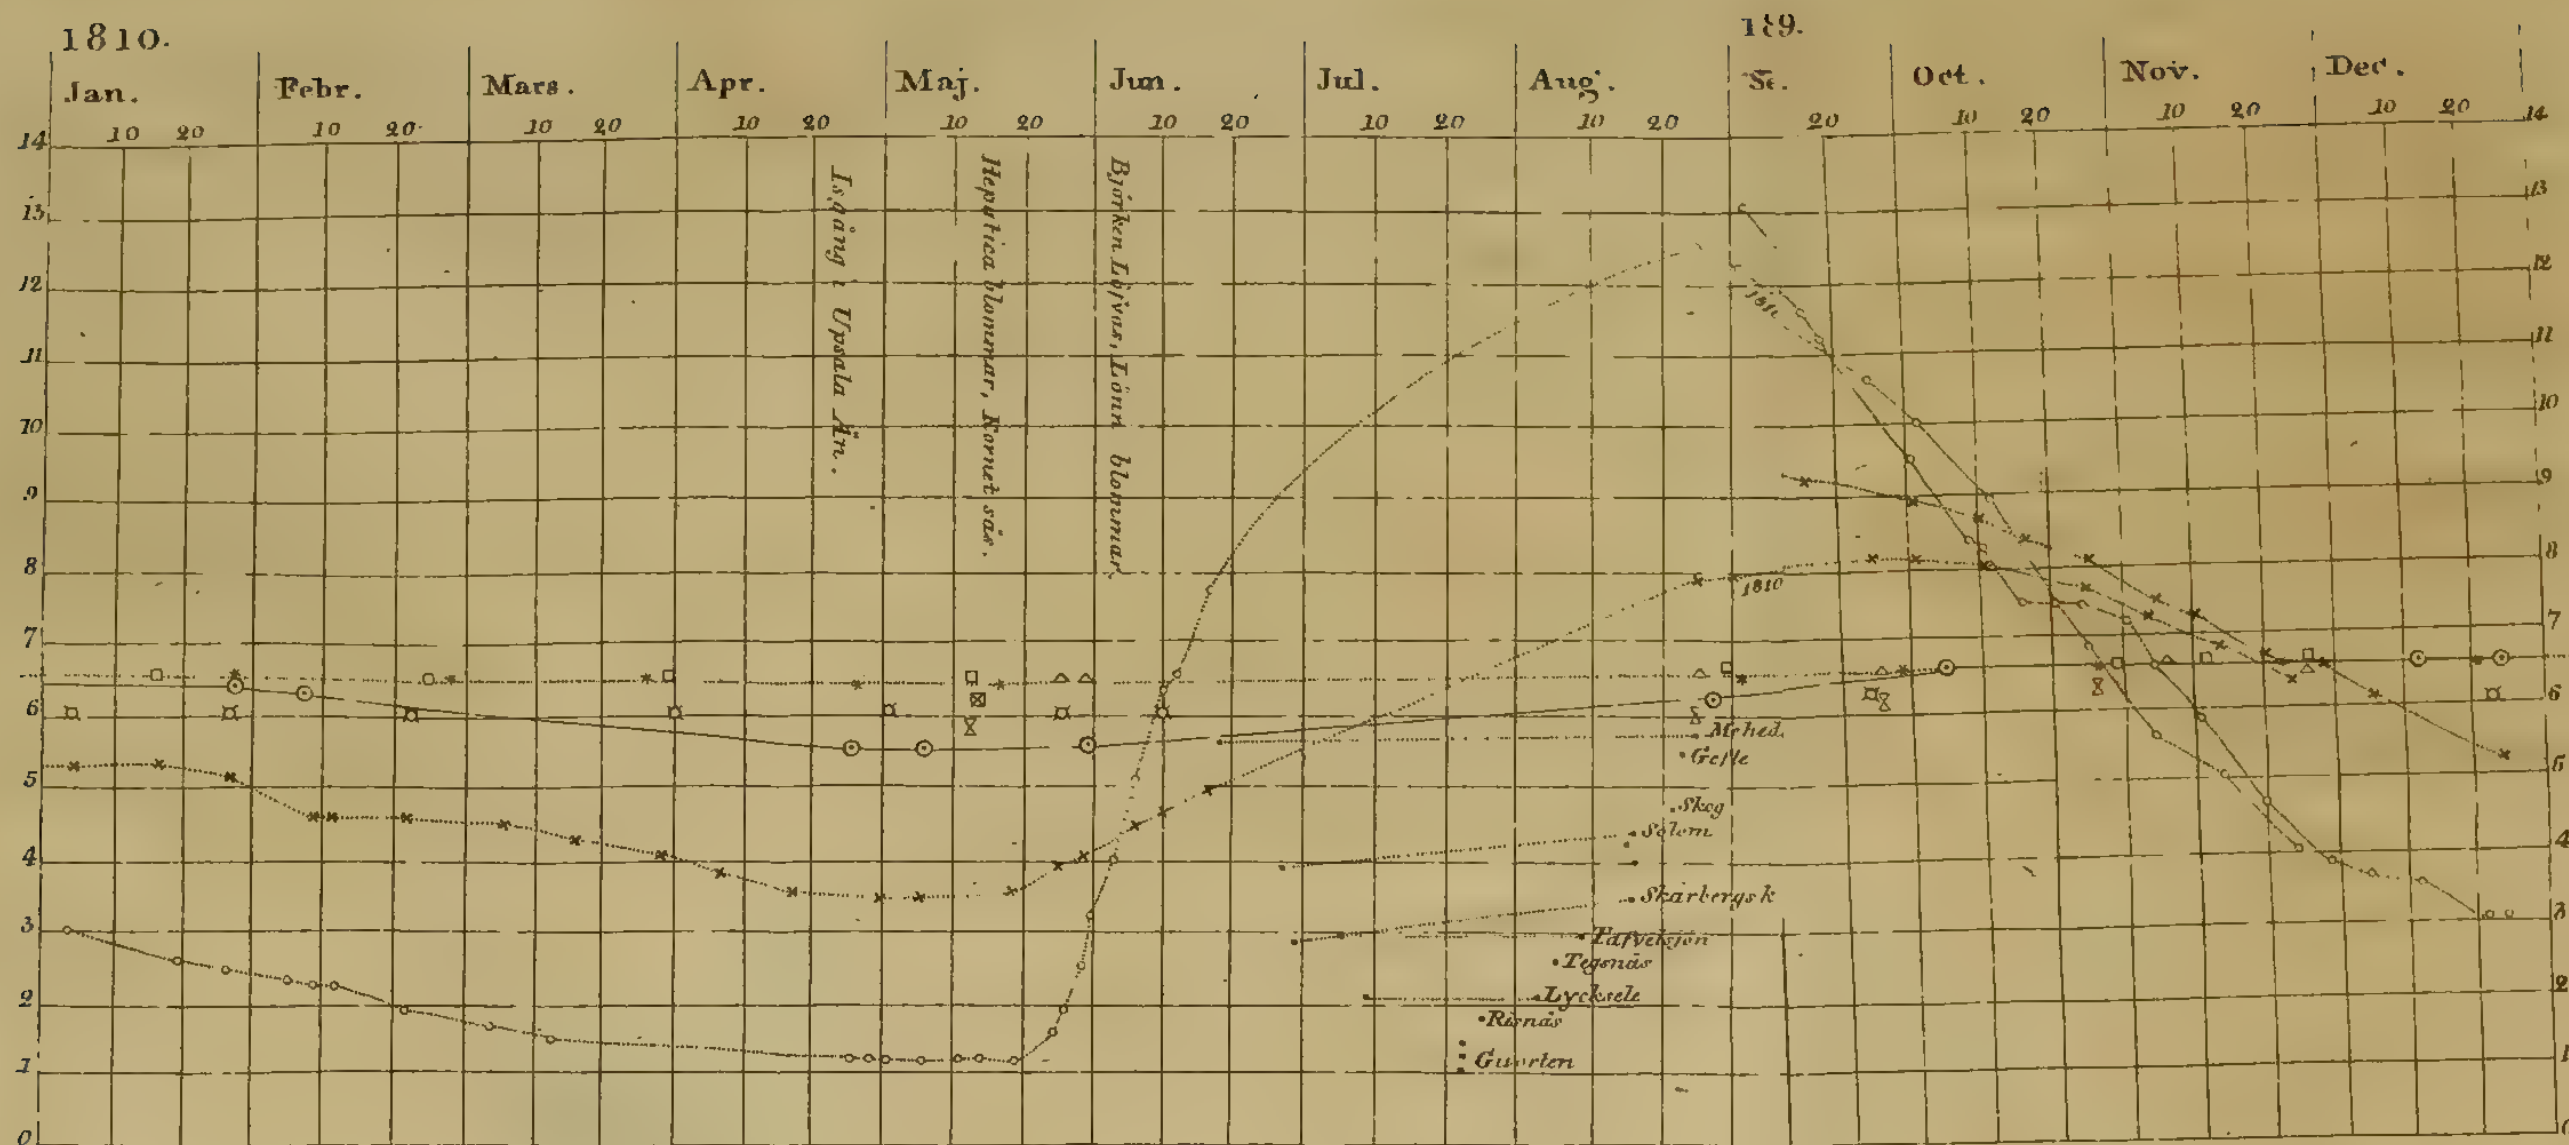 1810.
189.
Jan. Febr. Mars. Apr. Maj. Jun. Jul. Aug. Se. Oct. Nov. Dec.
10 20 10 20 10 20 10 20 10 20 10 20 10 20 10 20 20 10 20 10 20 10 20
14 14
13 13
12 12
11 11
10 10
9 9
8 8
7 7
6 6
5 5
4 4
3 3
2 2
1 1
0 0
Isgång i Upsala Ån.
Hepatica blommar, Kornet sås.
Björken Löfvas, Lönn blommar.
1811
1810
Mehed.
Gefle
Skog
Solem
Skärbergsk
Tafvelsjön
Tegsnäs
Lycksele
Risnäs
Gworten